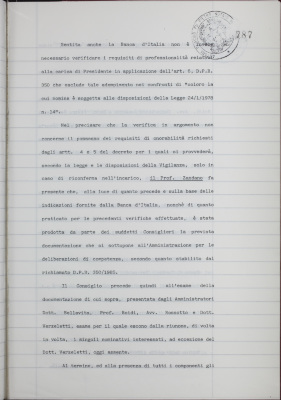 287
Sentita anche la Banca d'Italia non è
necessario verificare i requisiti di professionalità relativi
alla carica di Presidente in applicazione dell'art. D.P.R.
350 che esclude tale adempimento nei confronti di "coloro la
cui nomina è soggetta alle disposizioni della legge 24/1/1978
n. 14".
Nel precisare che la verifica in argomento
concerne il possesso dei requisiti di onorabilità richiesti
dagli artt. 4 e 5 del decreto per i quali si provvederà,
secondo la legge e le disposizioni della Vigilanza, solo in
caso di riconferma nell'incarico, il Prof. fa
presente che, alla luce di quanto precede e sulla base delle
indicazioni fornite dalla Banca d'Italia, nonché di quanto
praticato per le precedenti verifiche effettuate, è stata
prodotta da parte dei suddetti Consiglieri la prevista
documentazione che si sottopone all'Amministrazione per le
deliberazioni di competenza, secondo quanto stabilito dal
richiamato D.P.R. 350/1985.
Il Consiglio procede quindi all'esame della
documentazione di cui sopra, presentata dagli Amministratori
Dott. Prof. Avv. e Dott.
esame per il quale escono dalla riunione, di volta
in volta, i singoli nominativi interessati, ad eccezione del
Dott. oggi assente.
Al termine, ed alla presenza di tutti i componenti già